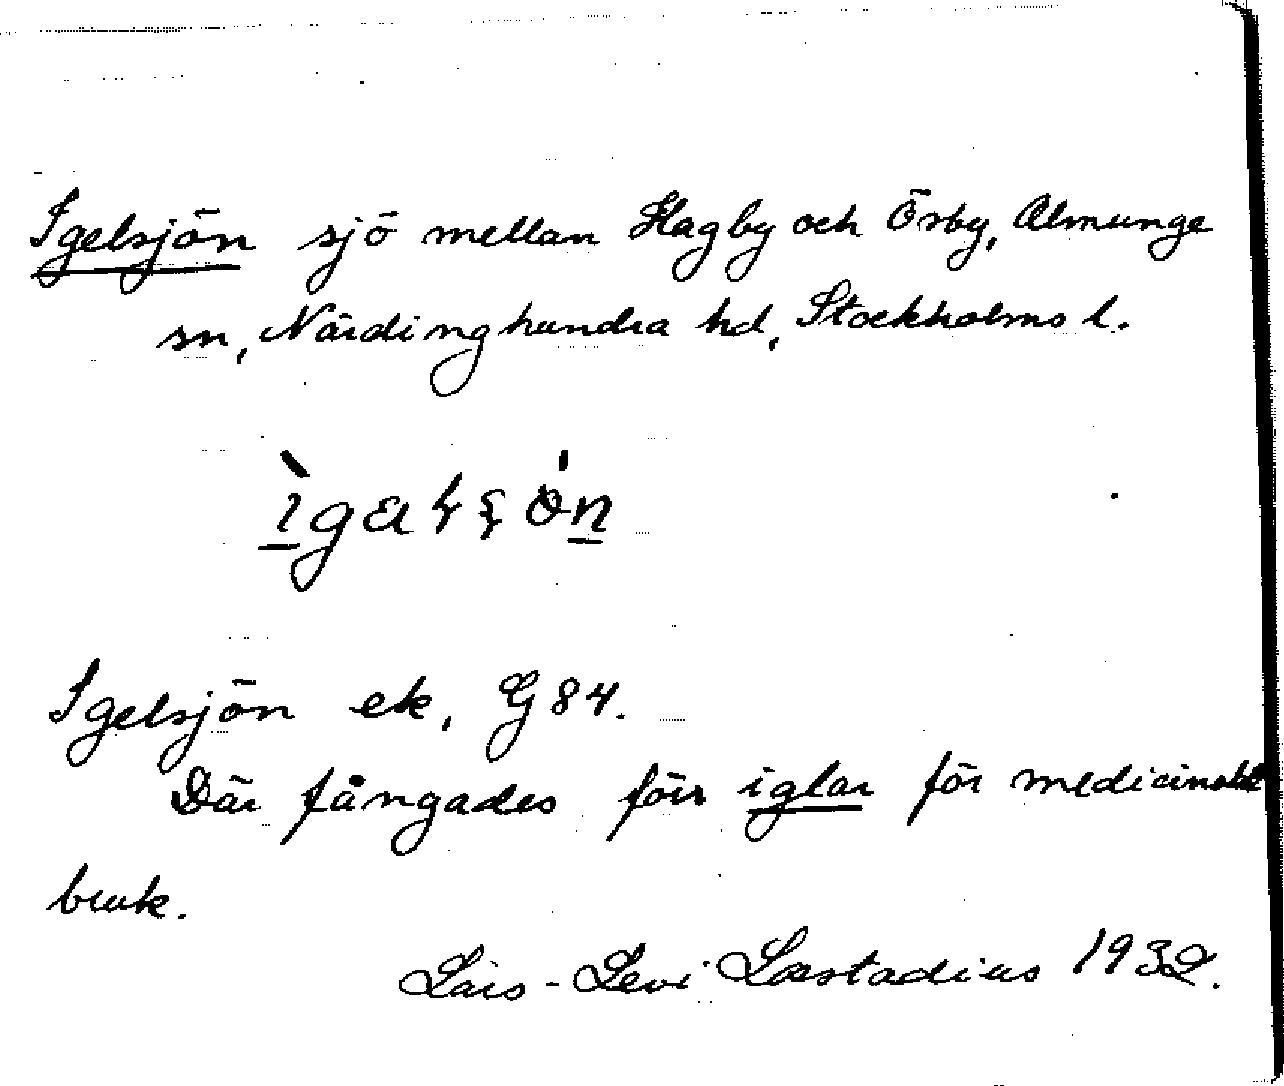 Igelsjön sjö mellan Hagby och Örby, Almunge
sn, Närdinghundra hd, Stockholms l.
Igelsjön ek, G 84.
Där fångades förr iglar för medicinskt
bruk.
Lars-Levi Læstadius 1932.